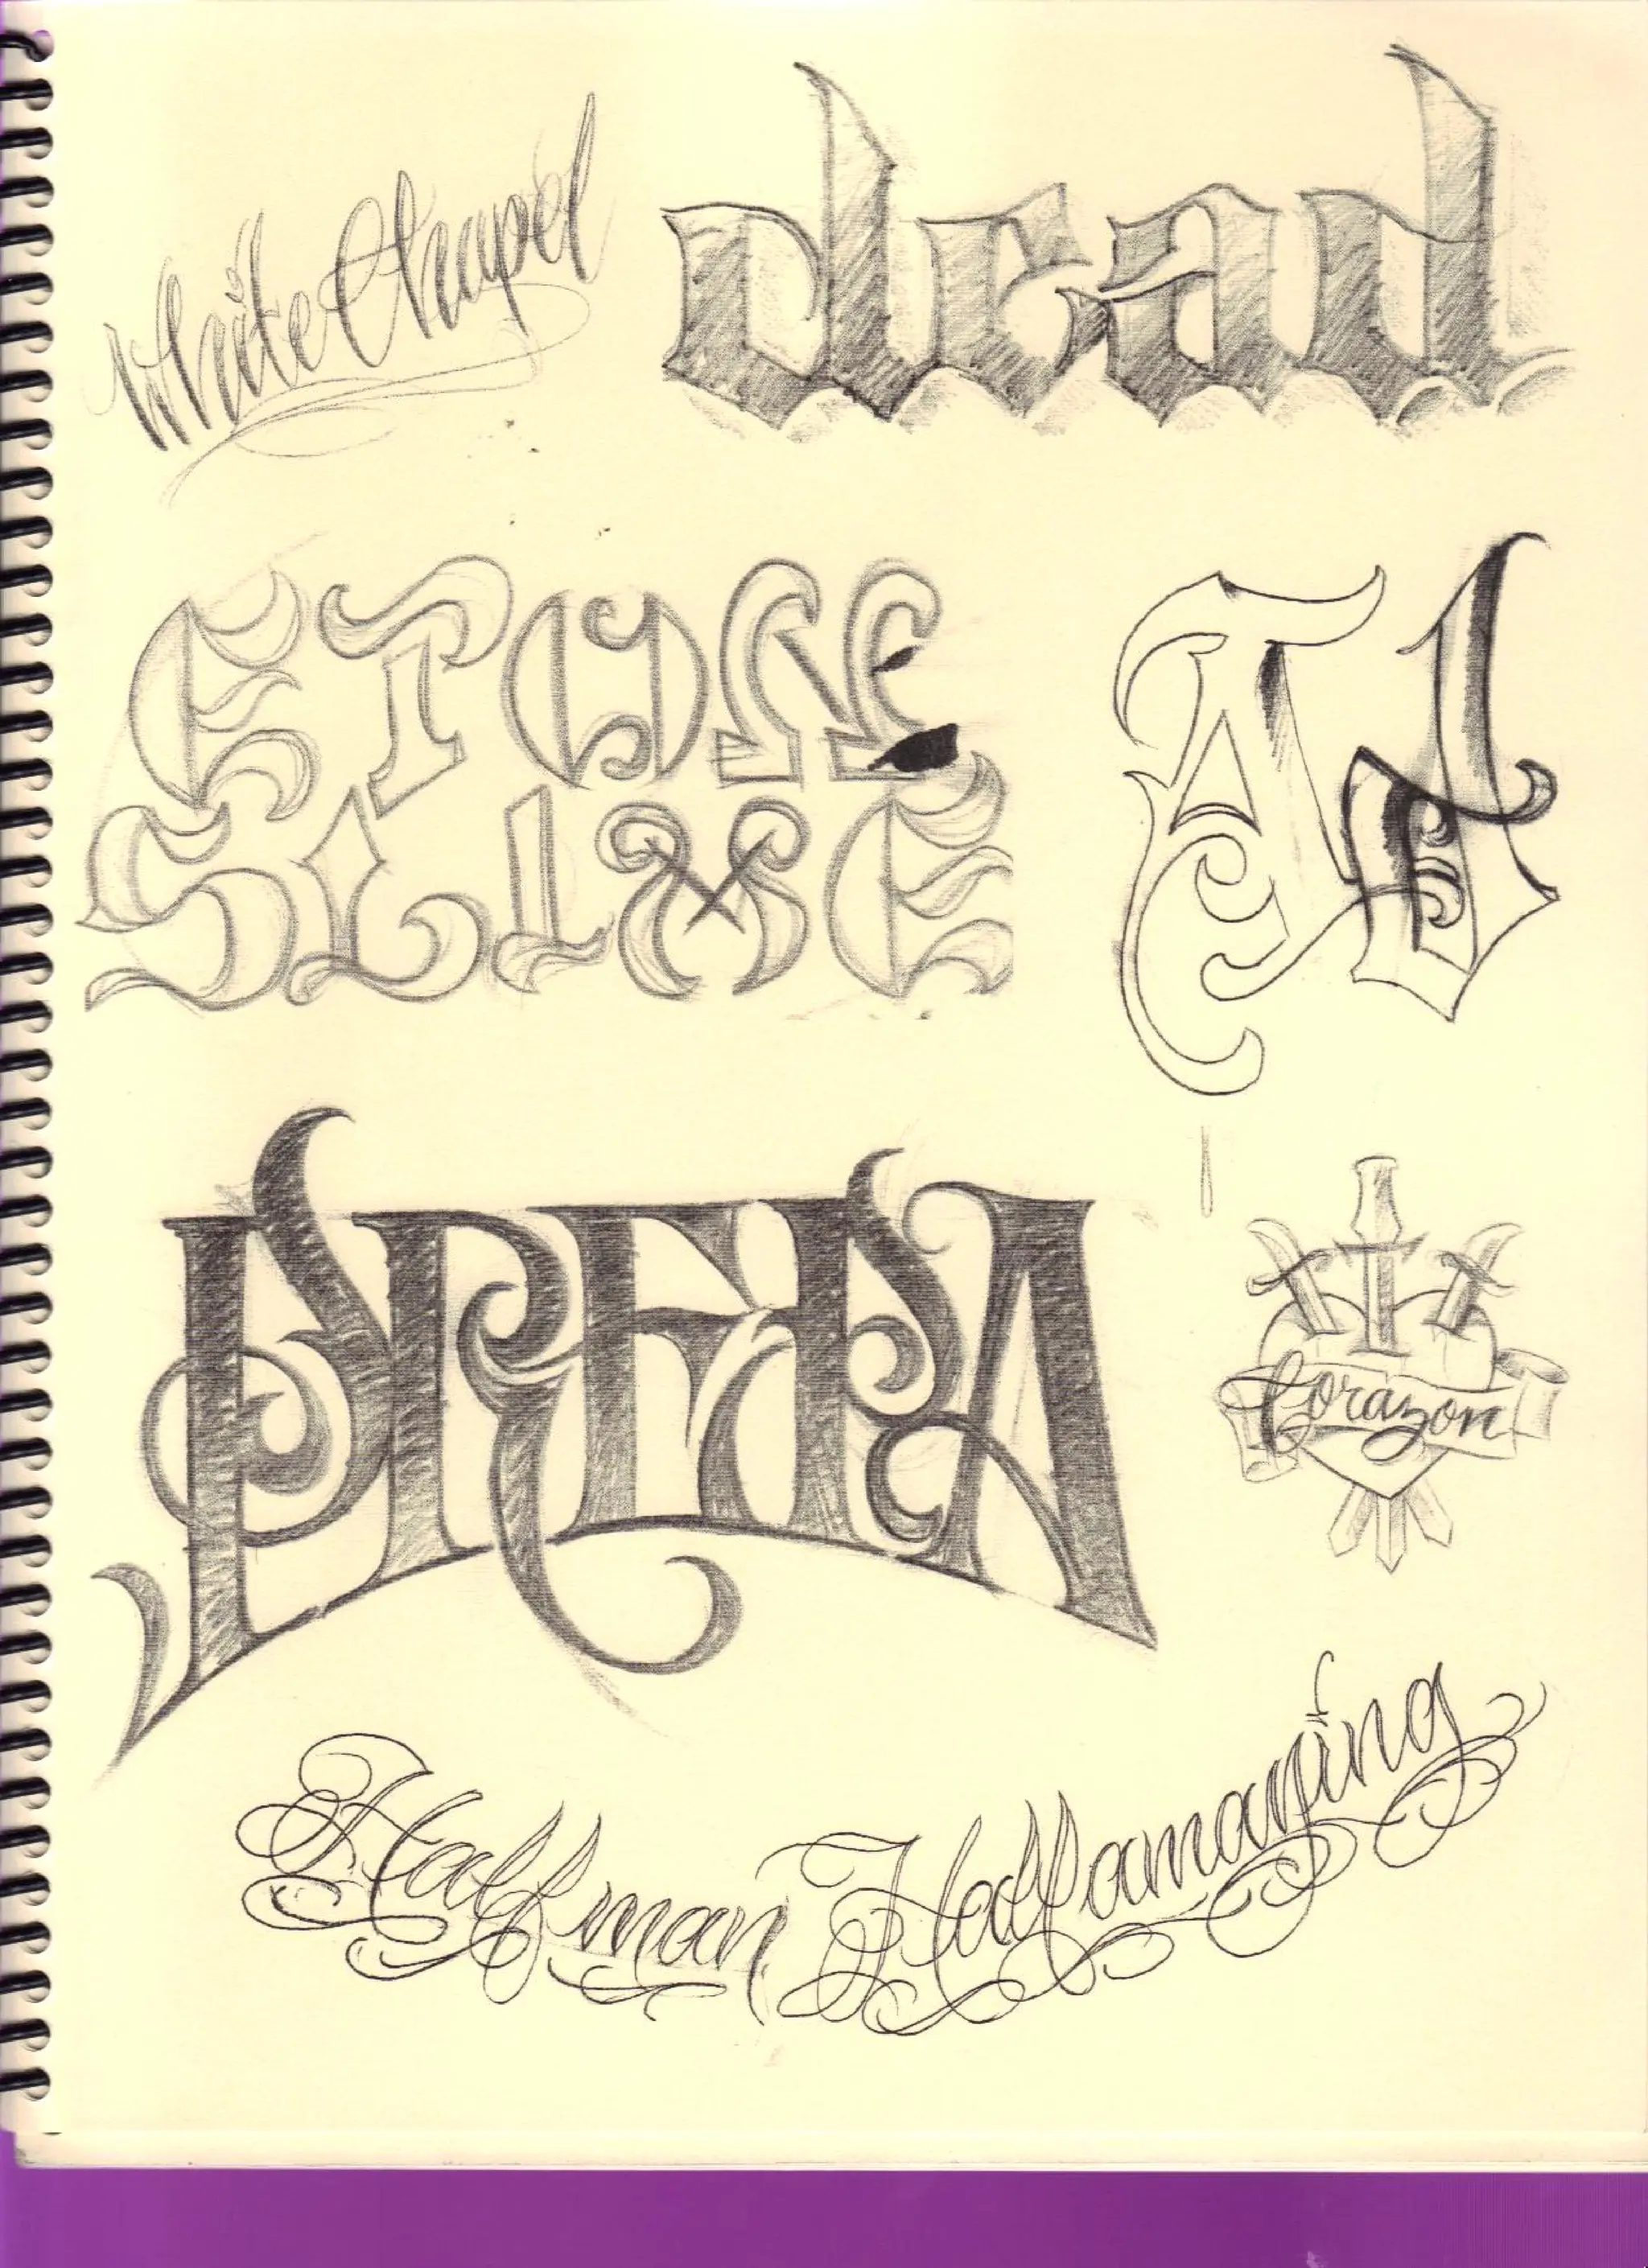 White Chapel
dead
ETON
SLIME
PREPA
Corazon
Half man Half amazing